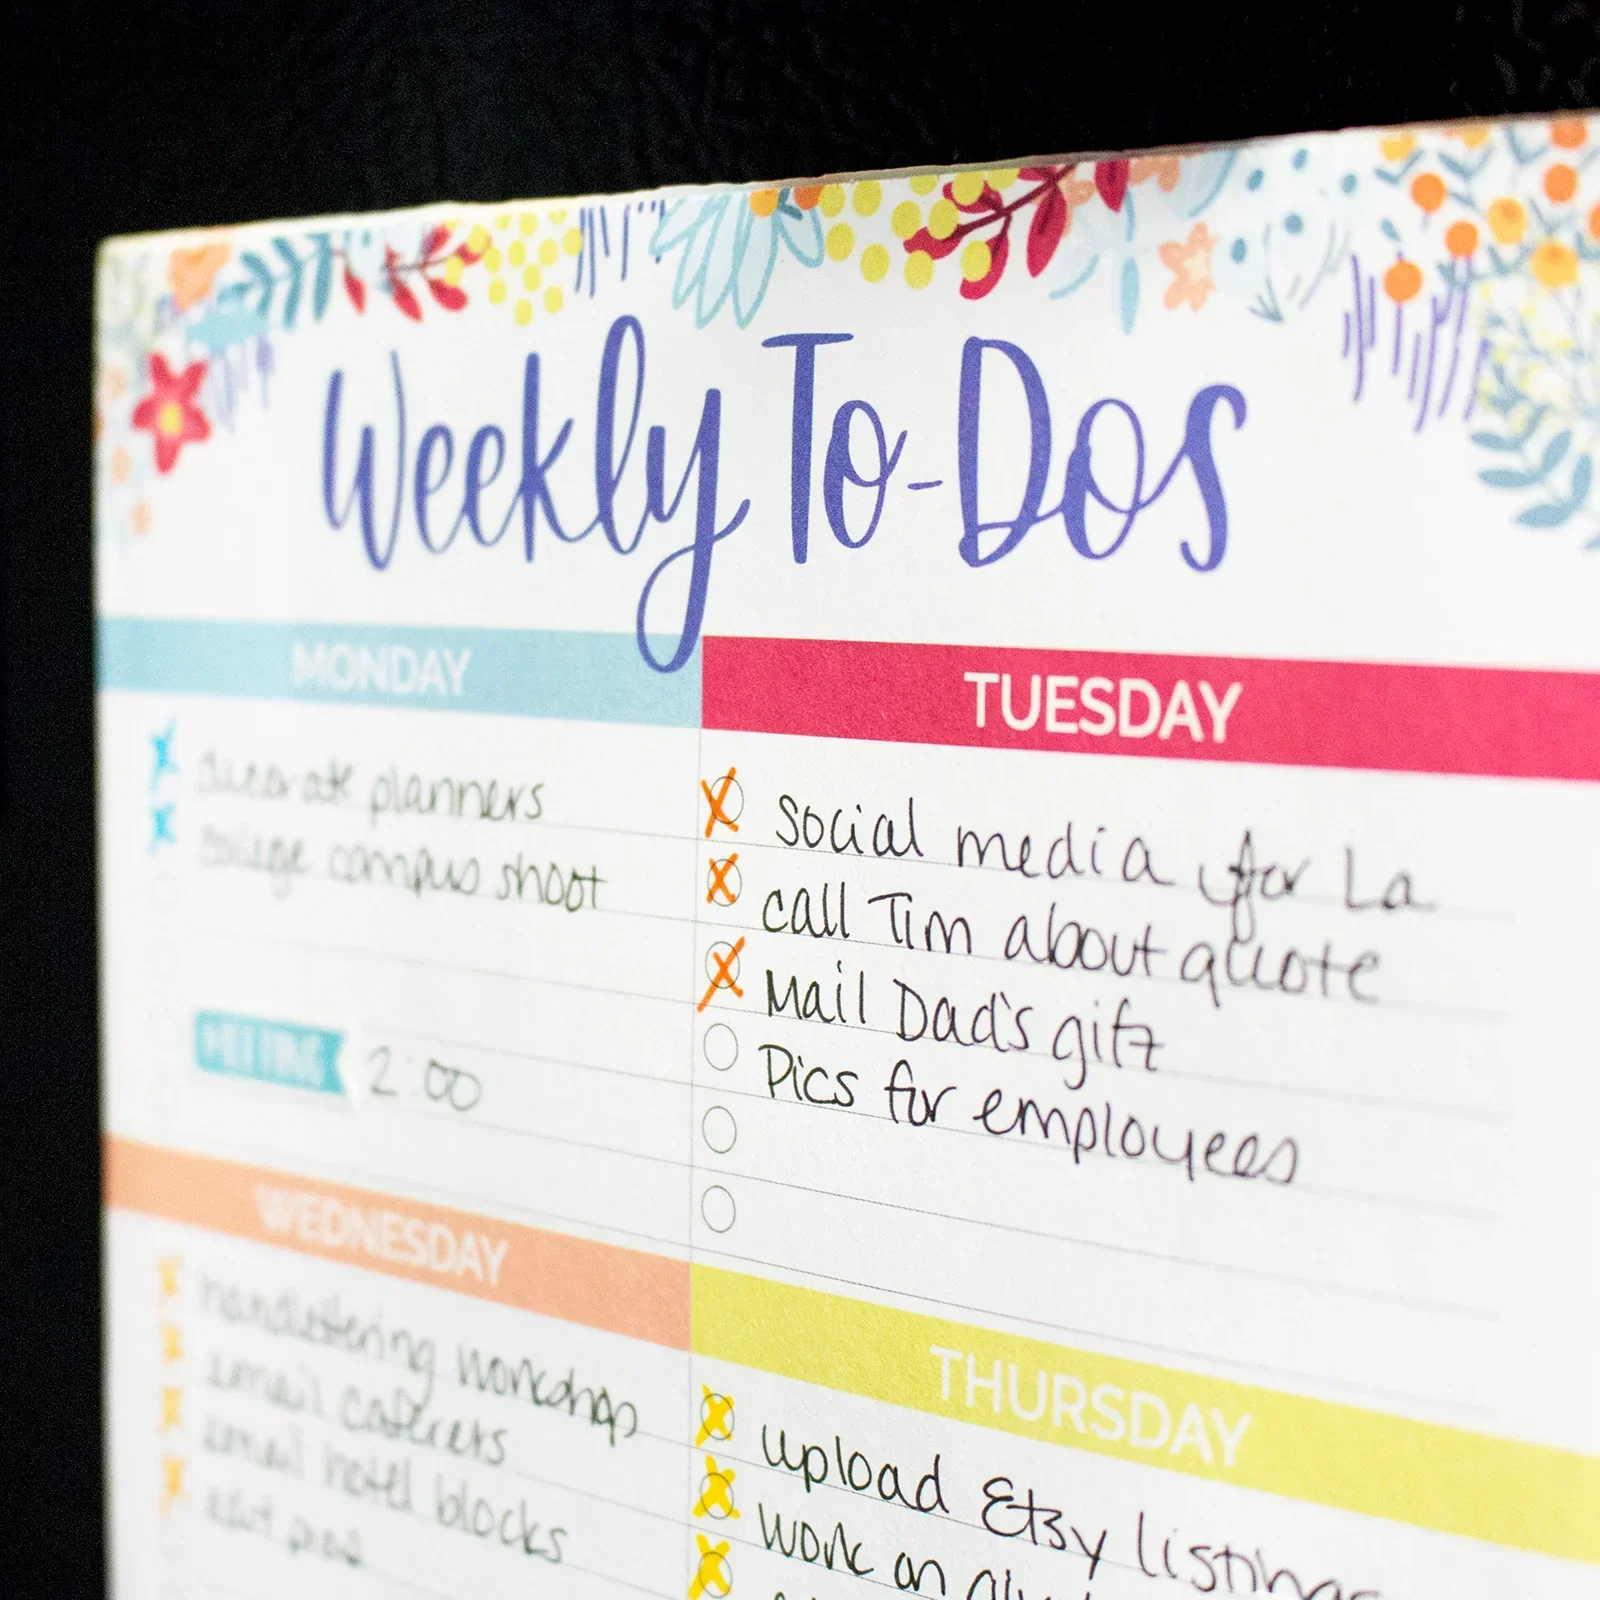 Weekly To-Dos
MONDAY
decorate planners
college campus shoot
MEETING 2:00
TUESDAY
Social media for La
call Tim about quote
Mail Dad's gift
Pics for employees
WEDNESDAY
handlettering workshop
email caterers
email hotel blocks
edit
THURSDAY
upload Etsy listings
work on